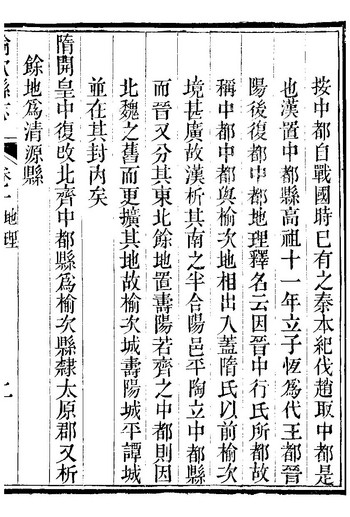 按中都自戰國時已有之秦本紀伐趙取中都是
也漢置中都縣高祖十一年立子恆爲代王都晉
陽後復都中都地理釋名云因晉中行氏所都故
稱中都中都與榆次地相出入蓋隋氏以前榆次
境甚廣故漢析其南之半合陽邑平陶立中都縣
而晉又分其東北餘地置壽陽若齊之中都則因
北魏之舊而更擴其地故榆次城壽陽城平譚城
並在其封内矣
隋開皇中復改北齊中都縣爲榆次縣隸太原郡又析
餘地爲清源縣
榆次縣志
卷一地理